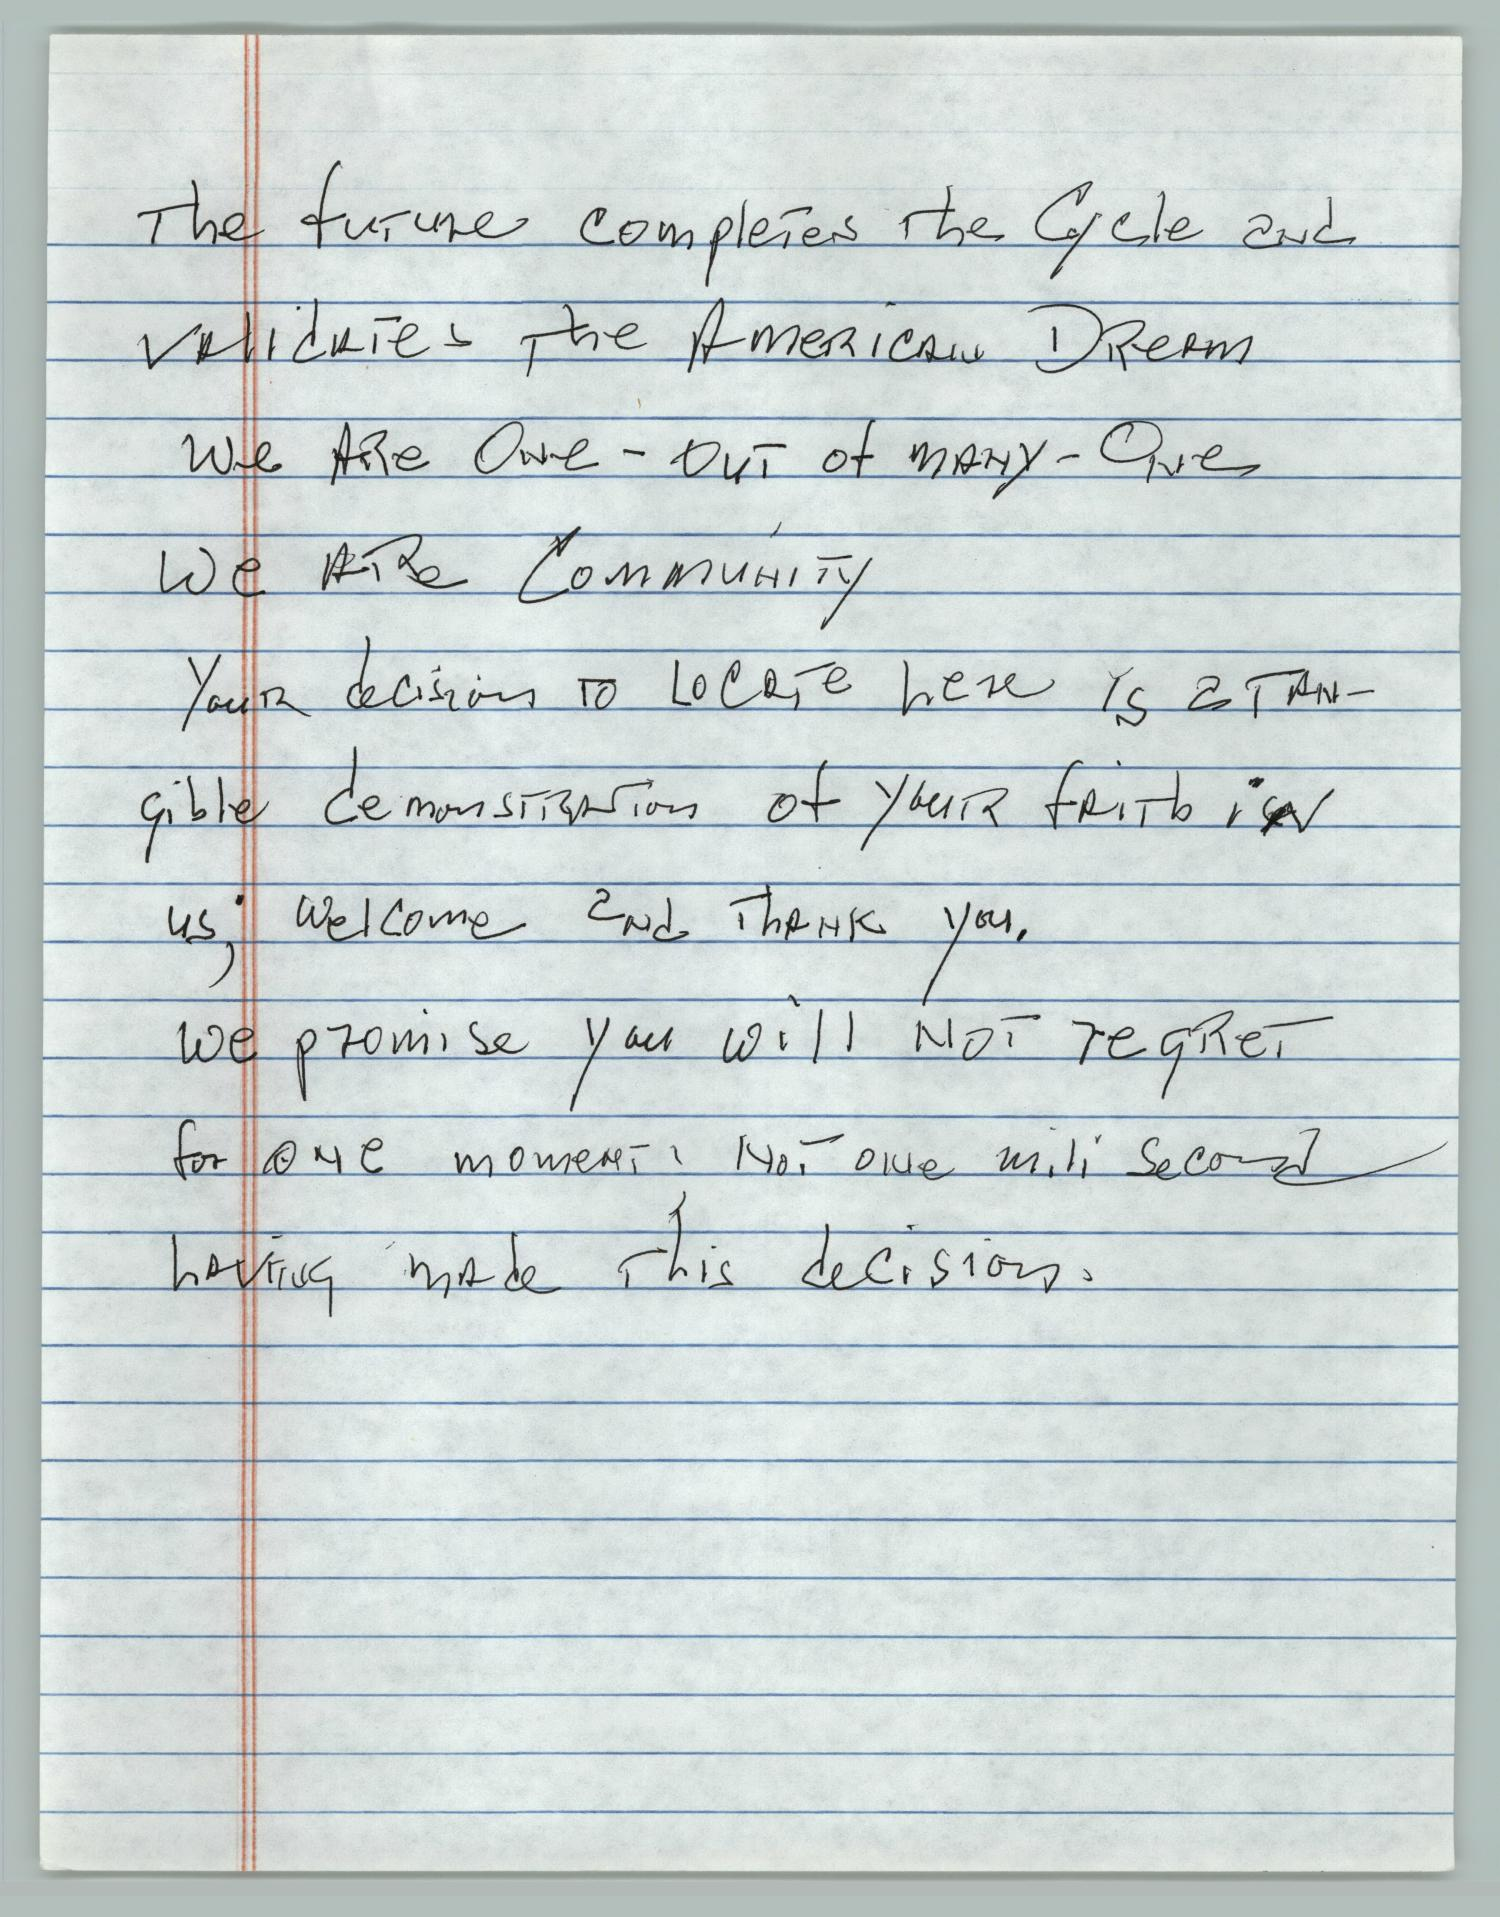 The future completes the Cycle and
validates the American Dream
We Are One - out of many - One
We Are Community
Your decision to Locate here is a tan-
gible demonstration of your faith in
us; welcome and Thank you.
We promise you will Not regret
for one moment: Not one mili second
having made this decision.